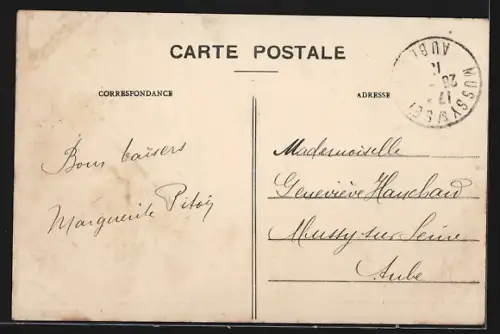 CARTE POSTALE
CORRESPONDANCE
ADRESSE
MUSSY S/ SEI
AUBE
17
26
Bons baisers
Marguerite
Mademoiselle
Geneviève Hanchard
Mussy sur Seine
Aube